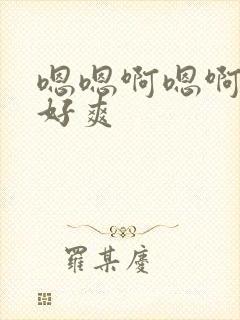 嗯嗯啊嗯啊
好爽
羅某慶